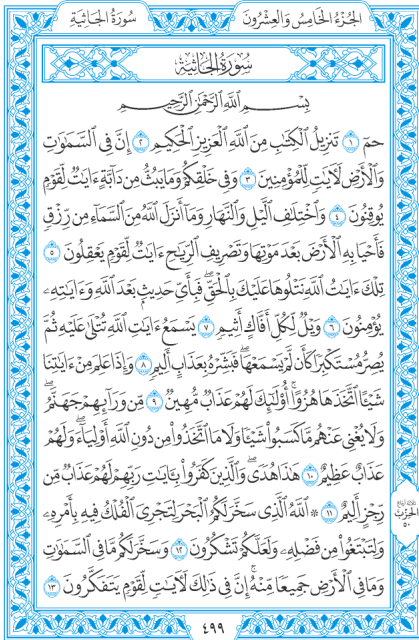 الجُزْءُ الخَامِسُ وَالعِشْرُونَ
سُورَةُ الجَاثِيَةِ
سُورَةُ الجَاثِيَةِ
بِسْمِ اللَّهِ الرَّحْمَٰنِ الرَّحِيمِ
حمٓ ١ تَنزِيلُ الْكِتَٰبِ مِنَ اللَّهِ الْعَزِيزِ الْحَكِيمِ ٢ إِنَّ فِي السَّمَٰوَٰتِ
وَالْأَرْضِ لَءَايَٰتٍ لِّلْمُؤْمِنِينَ ٣ وَفِي خَلْقِكُمْ وَمَا يَبُثُّ مِن دَآبَّةٍ ءَايَٰتٌ لِّقَوْمٍ
يُوقِنُونَ ٤ وَاخْتِلَٰفِ الَّيْلِ وَالنَّهَارِ وَمَآ أَنزَلَ اللَّهُ مِنَ السَّمَآءِ مِن رِّزْقٍ
فَأَحْيَا بِهِ الْأَرْضَ بَعْدَ مَوْتِهَا وَتَصْرِيفِ الرِّيَٰحِ ءَايَٰتٌ لِّقَوْمٍ يَعْقِلُونَ ٥
تِلْكَ ءَايَٰتُ اللَّهِ نَتْلُوهَا عَلَيْكَ بِالْحَقِّ ۖ فَبِأَيِّ حَدِيثٍ بَعْدَ اللَّهِ وَءَايَٰتِهِۦ
يُؤْمِنُونَ ٦ وَيْلٌ لِّكُلِّ أَفَّاكٍ أَثِيمٍ ٧ يَسْمَعُ ءَايَٰتِ اللَّهِ تُتْلَىٰ عَلَيْهِ ثُمَّ
يُصِرُّ مُسْتَكْبِرًا كَأَن لَّمْ يَسْمَعْهَا ۖ فَبَشِّرْهُ بِعَذَابٍ أَلِيمٍ ٨ وَإِذَا عَلِمَ مِنْ ءَايَٰتِنَا
شَيْـًٔا اتَّخَذَهَا هُزُوًا ۚ أُولَٰٓئِكَ لَهُمْ عَذَابٌ مُّهِينٌ ٩ مِّن وَرَآئِهِمْ جَهَنَّمُ ۖ
وَلَا يُغْنِي عَنْهُم مَّا كَسَبُوا شَيْـًٔا وَلَا مَا اتَّخَذُوا مِن دُونِ اللَّهِ أَوْلِيَآءَ ۖ وَلَهُمْ
عَذَابٌ عَظِيمٌ ١٠ هَٰذَا هُدًى ۖ وَالَّذِينَ كَفَرُوا بِـَٔايَٰتِ رَبِّهِمْ لَهُمْ عَذَابٌ مِّن
رِّجْزٍ أَلِيمٌ ١١ ۞ اللَّهُ الَّذِي سَخَّرَ لَكُمُ الْبَحْرَ لِتَجْرِيَ الْفُلْكُ فِيهِ بِأَمْرِهِۦ
وَلِتَبْتَغُوا مِن فَضْلِهِۦ وَلَعَلَّكُمْ تَشْكُرُونَ ١٢ وَسَخَّرَ لَكُم مَّا فِي السَّمَٰوَٰتِ
وَمَا فِي الْأَرْضِ جَمِيعًا مِّنْهُ ۚ إِنَّ فِي ذَٰلِكَ لَءَايَٰتٍ لِّقَوْمٍ يَتَفَكَّرُونَ ١٣
الحِزْبُ
٥٠
٤٩٩